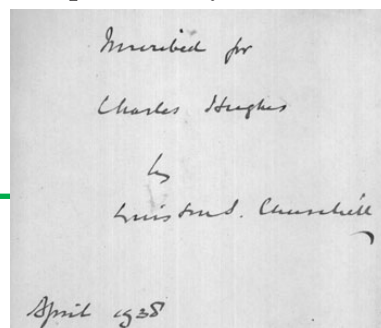 Inscribed for
Charles Hughes
by
Winston S. Churchill
April 1938